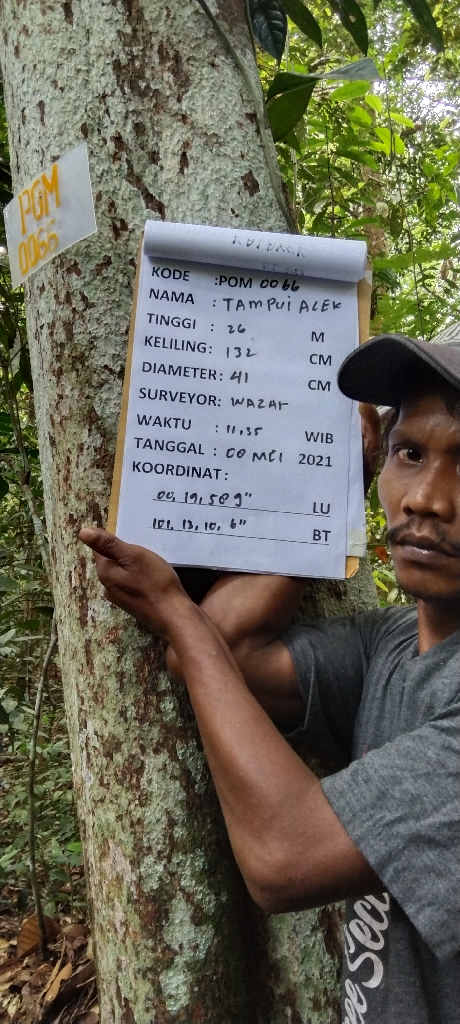 PGM
0066
KODE : POM 0066
NAMA : TAMPUI ALEK
TINGGI : 26 M
KELILING: 132 CM
DIAMETER: 41 CM
SURVEYOR: WAZAR
WAKTU : 11.35 WIB
TANGGAL : 00 MEI 2021
KOORDINAT:
00, 19, 509" LU
101, 13, 10, 6" BT